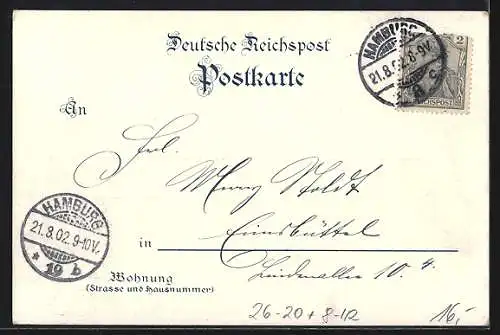 Deutsche Reichspost
Postkarte
HAMBURG
21.8.02.8-9V.
2
REICHSPOST
An
Frl.
Meny Stoldt
Eimsbüttel
in
Lindenallee 10.4.
HAMBURG
21.8.02.9-10V.
* 19 b
Wohnung
(Strasse und Hausnummer)
26-20+8-1R
16,-